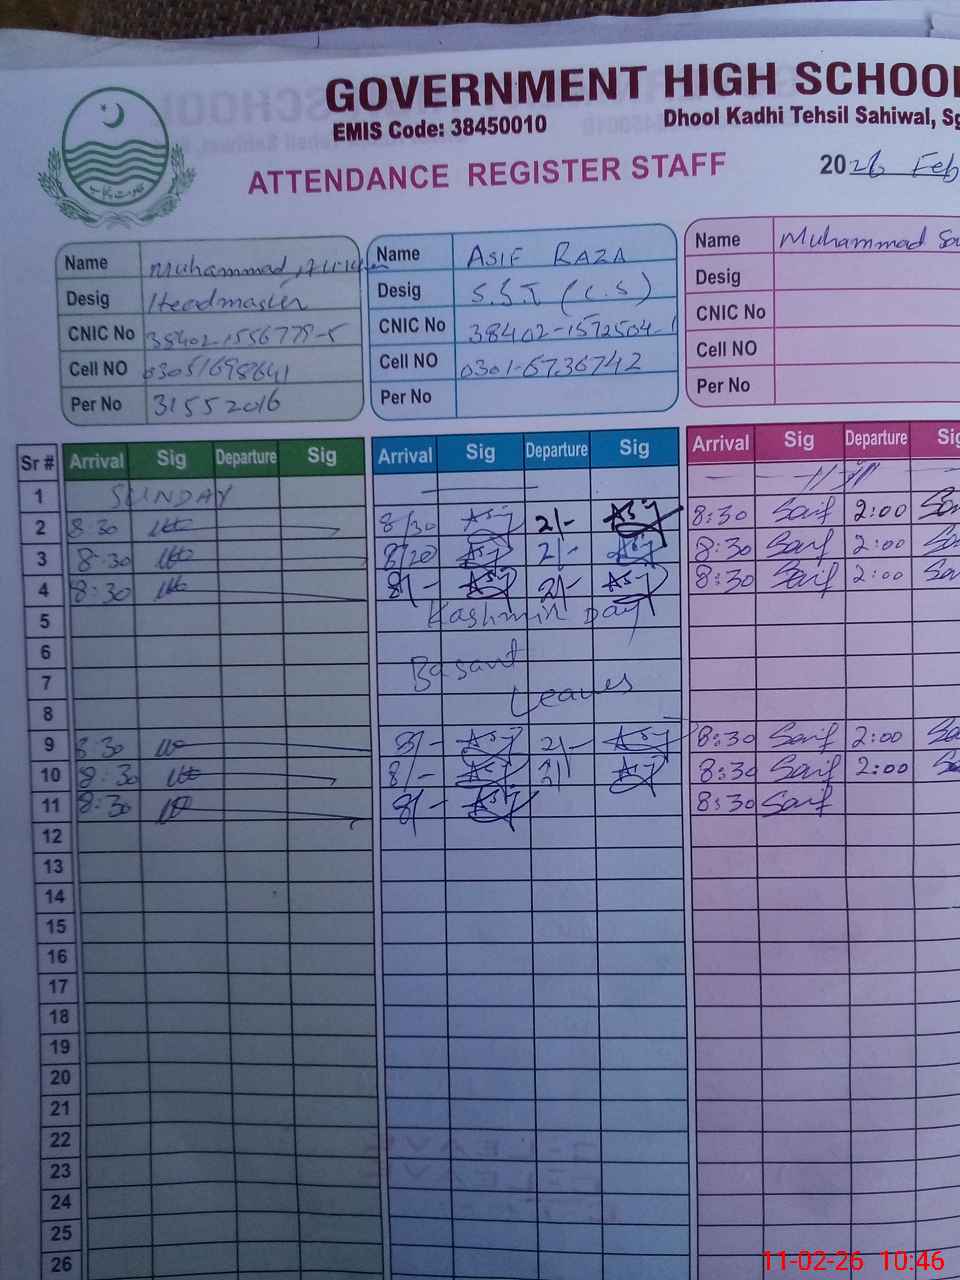 GOVERNMENT HIGH SCHOOL
EMIS Code: 38450010
Dhool Kadhi Tehsil Sahiwal, Sg
ATTENDANCE REGISTER STAFF
2026 Feb
حکومت پنجاب
Name Muhammad
Desig Headmaster
CNIC No
Cell NO
Per No 31552016
Name ASIF RAZA
Desig S.S.T (C.S)
CNIC No 38402-1572504-1
Cell NO 0301-6736742
Per No
Name Muhammad
Desig
CNIC No
Cell NO
Per No
Sr # Arrival Sig Departure Sig Arrival Sig Departure Sig Arrival Sig Departure Sig
1 SUNDAY
2 8:30 8/30 Asif 2/- Asif 8:30 Saif 2:00
3 8:30 8/20 Asif 2/- Asif 8:30 Saif 2:00
4 8:30 8/- Asif 2/- Asif 8:30 Saif 2:00
5 Kashmir Day
6
7 Basant Leaves
8
9 8:30 8/- Asif 2/- Asif 8:30 Saif 2:00
10 8:30 8/- Asif 2/ Asif 8:30 Saif 2:00
11 8:30 8/- Asif 8:30 Saif
12
13
14
15
16
17
18
19
20
21
22
23
24
25
26
11-02-26 10:46